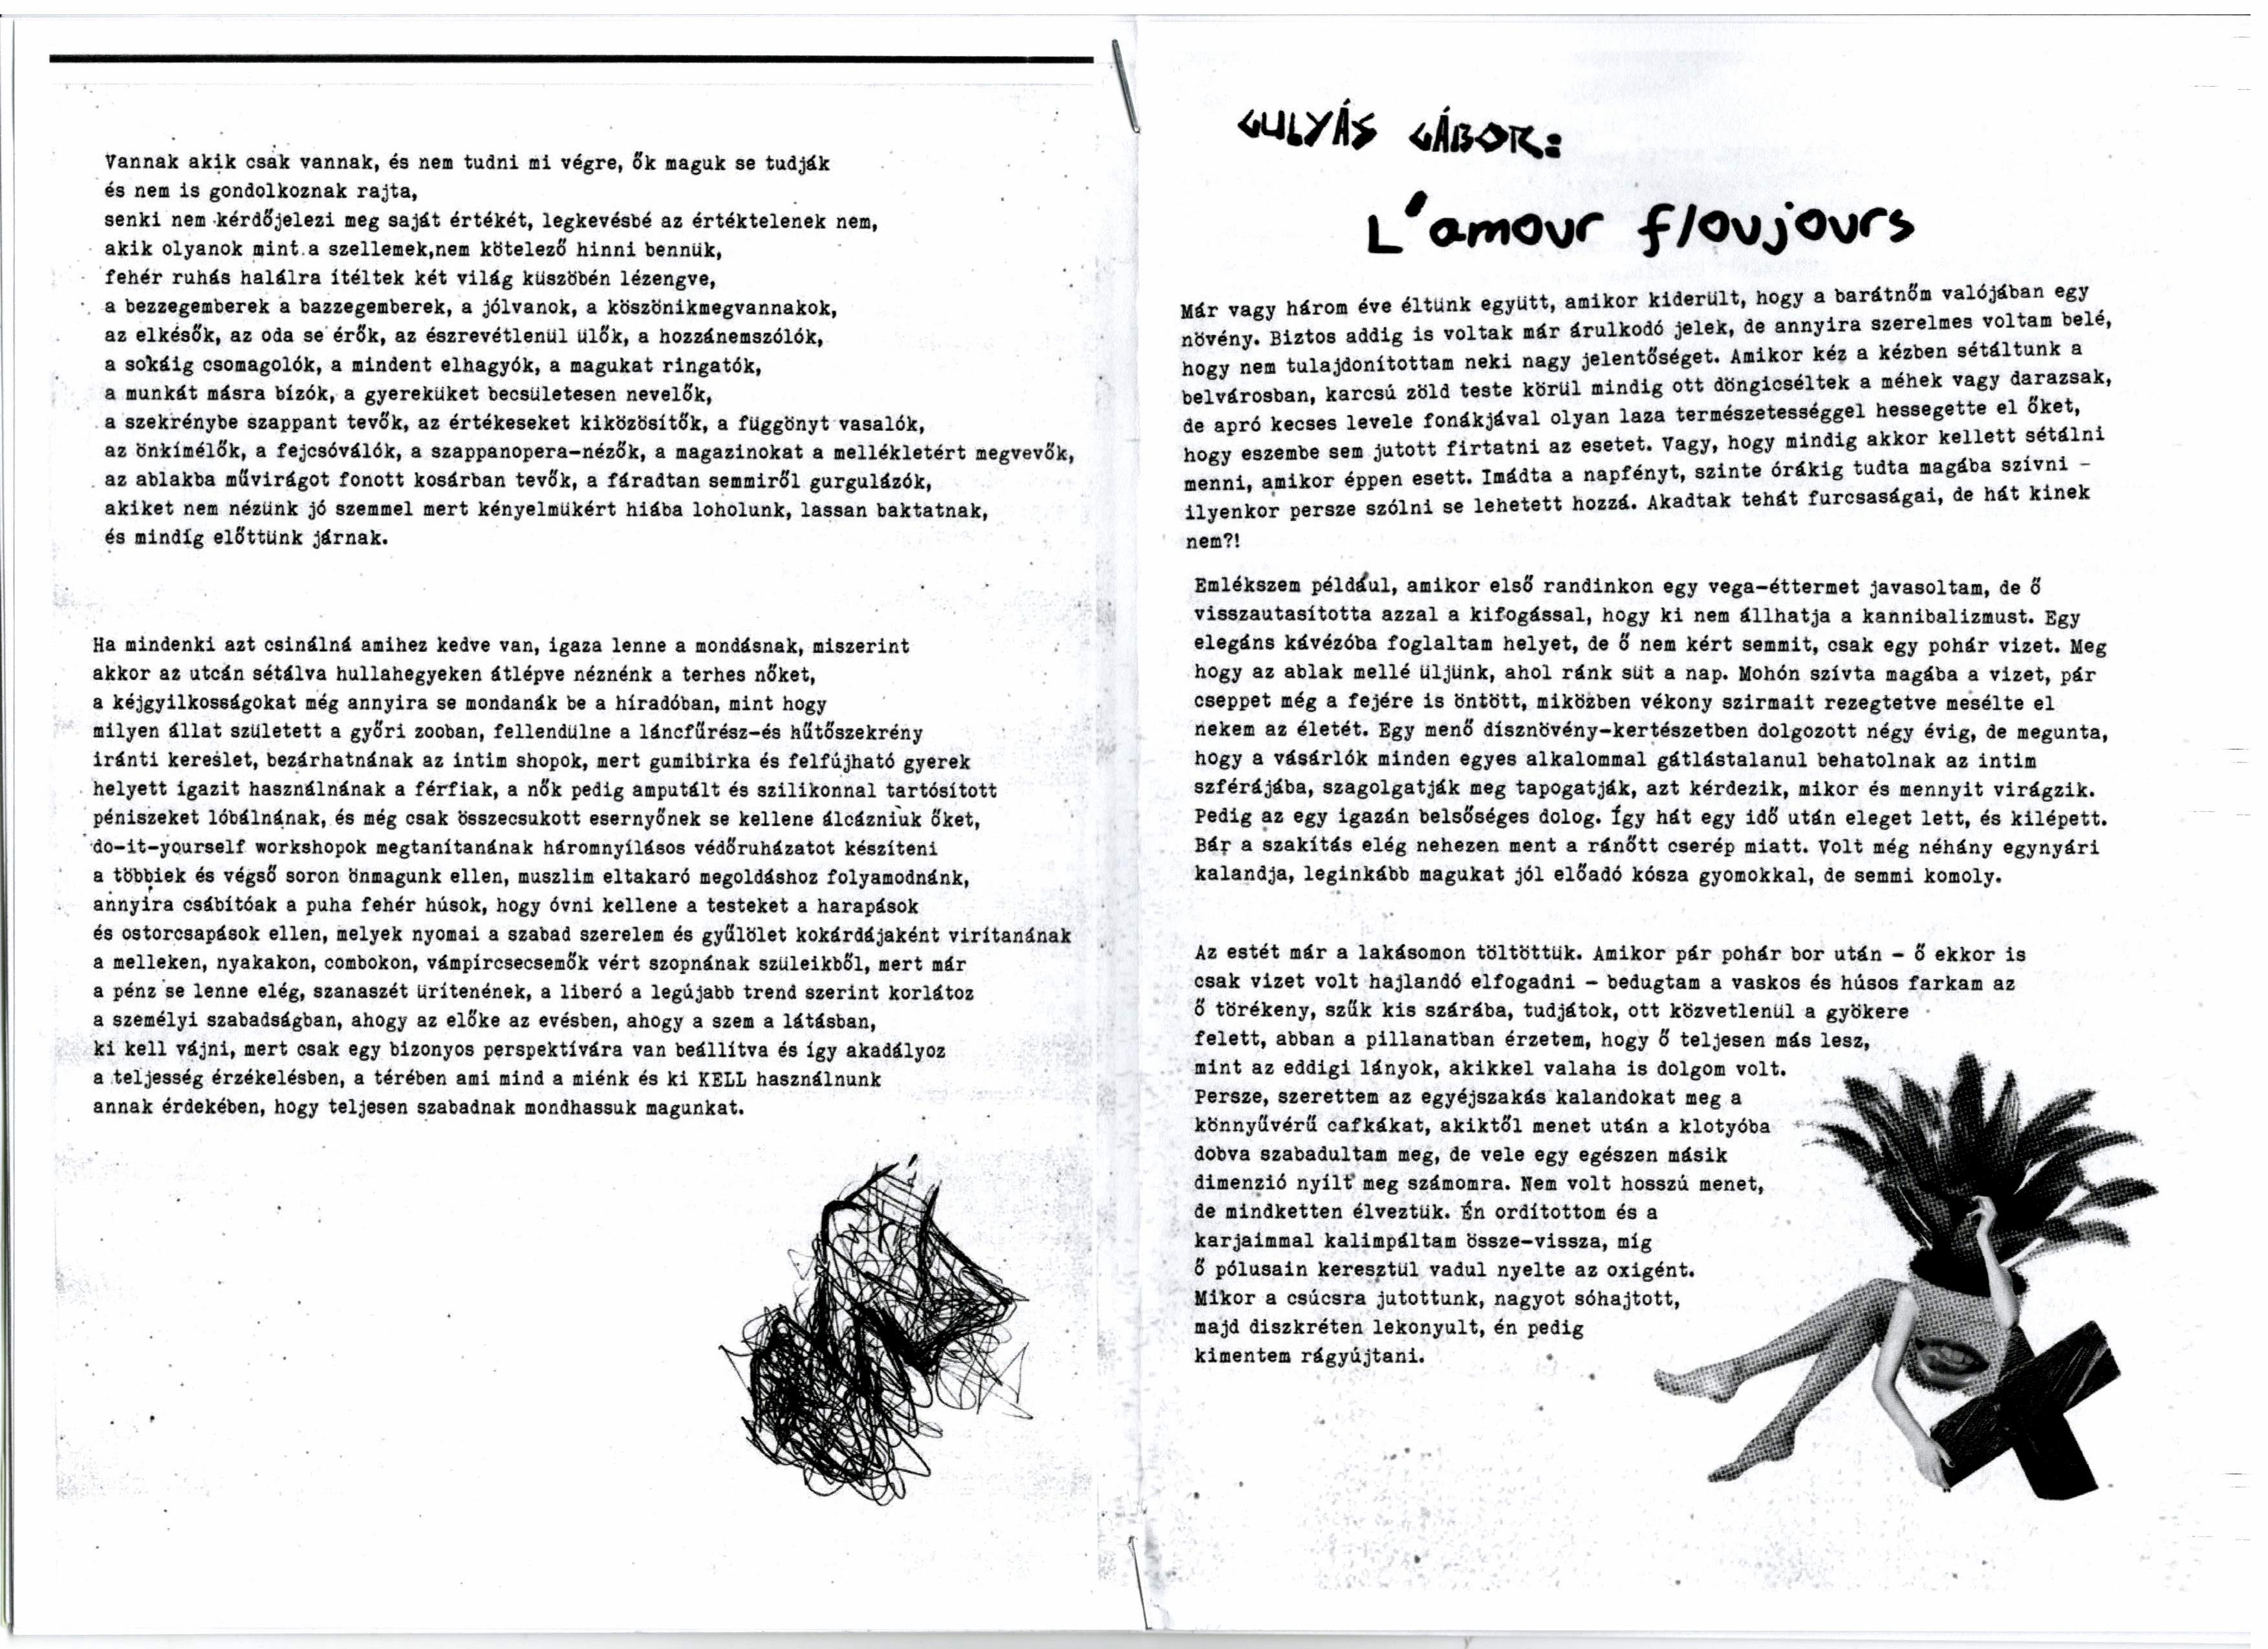 Vannak akik csak vannak, és nem tudni mi végre, ők maguk se tudják
és nem is gondolkoznak rajta,
senki nem kérdőjelezi meg saját értékét, legkevésbé az értéktelenek nem,
akik olyanok mint a szellemek,nem kötelező hinni bennük,
fehér ruhás halálra ítéltek két világ küszöbén lézengve,
a bezzegemberek a bazzegemberek, a jólvanok, a köszönikmegvannakok,
az elkésők, az oda se érők, az észrevétlenül ülők, a hozzánemszólók,
a sokáig csomagolók, a mindent elhagyók, a magukat ringatók,
a munkát másra bízók, a gyereküket becsületesen nevelők,
a szekrénybe szappant tevők, az értékeseket kiközösítők, a függönyt vasalók,
az önkímélők, a fejcsóválók, a szappanopera-nézők, a magazinokat a mellékletért megvevők,
az ablakba művirágot fonott kosárban tevők, a fáradtan semmiről gurgulázók,
akiket nem nézünk jó szemmel mert kényelmükért hiába loholunk, lassan baktatnak,
és mindíg előttünk járnak.
Ha mindenki azt csinálná amihez kedve van, igaza lenne a mondásnak, miszerint
akkor az utcán sétálva hullahegyeken átlépve néznénk a terhes nőket,
a kéjgyilkosságokat még annyira se mondanák be a híradóban, mint hogy
milyen állat született a győri zooban, fellendülne a láncfűrész-és hűtőszekrény
iránti kereslet, bezárhatnának az intim shopok, mert gumibirka és felfújható gyerek
helyett igazit használnának a férfiak, a nők pedig amputált és szilikonnal tartósított
péniszeket lóbálnának, és még csak összecsukott esernyőnek se kellene álcázniuk őket,
do-it-yourself workshopok megtanítanának háromnyílásos védőruházatot készíteni
a többiek és végső soron önmagunk ellen, muszlim eltakaró megoldáshoz folyamodnánk,
annyira csábítóak a puha fehér húsok, hogy óvni kellene a testeket a harapások
és ostorcsapások ellen, melyek nyomai a szabad szerelem és gyűlölet kokárdájaként virítanának
a melleken, nyakakon, combokon, vámpírcsecsemők vért szopnának szüleikből, mert már
a pénz se lenne elég, szanaszét ürítenének, a liberó a legújabb trend szerint korlátoz
a személyi szabadságban, ahogy az előke az evésben, ahogy a szem a látásban,
ki kell vájni, mert csak egy bizonyos perspektívára van beállítva és így akadályoz
a teljesség érzékelésben, a térében ami mind a miénk és ki KELL használnunk
annak érdekében, hogy teljesen szabadnak mondhassuk magunkat.
GULYÁS GÁBOR:
L'amour floujours
Már vagy három éve éltünk együtt, amikor kiderült, hogy a barátnőm valójában egy
növény. Biztos addig is voltak már árulkodó jelek, de annyira szerelmes voltam belé,
hogy nem tulajdonítottam neki nagy jelentőséget. Amikor kéz a kézben sétáltunk a
belvárosban, karcsú zöld teste körül mindig ott döngicséltek a méhek vagy darazsak,
de apró kecses levele fonákjával olyan laza természetességgel hessegette el őket,
hogy eszembe sem jutott firtatni az esetet. Vagy, hogy mindig akkor kellett sétálni
menni, amikor éppen esett. Imádta a napfényt, szinte órákig tudta magába szívni –
ilyenkor persze szólni se lehetett hozzá. Akadtak tehát furcsaságai, de hát kinek
nem?!
Emlékszem például, amikor első randinkon egy vega-éttermet javasoltam, de ő
visszautasította azzal a kifogással, hogy ki nem állhatja a kannibalizmust. Egy
elegáns kávézóba foglaltam helyet, de ő nem kért semmit, csak egy pohár vizet. Meg
hogy az ablak mellé üljünk, ahol ránk süt a nap. Mohón szívta magába a vizet, pár
cseppet még a fejére is öntött, miközben vékony szirmait rezegtetve mesélte el
nekem az életét. Egy menő dísznövény-kertészetben dolgozott négy évig, de megunta,
hogy a vásárlók minden egyes alkalommal gátlástalanul behatolnak az intim
szférájába, szagolgatják meg tapogatják, azt kérdezik, mikor és mennyit virágzik.
Pedig az egy igazán belsőséges dolog. Így hát egy idő után eleget lett, és kilépett.
Bár a szakítás elég nehezen ment a ránőtt cserép miatt. Volt még néhány egynyári
kalandja, leginkább magukat jól előadó kósza gyomokkal, de semmi komoly.
Az estét már a lakásomon töltöttük. Amikor pár pohár bor után – ő ekkor is
csak vizet volt hajlandó elfogadni – bedugtam a vaskos és húsos farkam az
ő törékeny, szűk kis szárába, tudjátok, ott közvetlenül a gyökere
felett, abban a pillanatban érzetem, hogy ő teljesen más lesz,
mint az eddigi lányok, akikkel valaha is dolgom volt.
Persze, szerettem az egyéjszakás kalandokat meg a
könnyűvérű cafkákat, akiktől menet után a klotyóba
dobva szabadultam meg, de vele egy egészen másik
dimenzió nyílt meg számomra. Nem volt hosszú menet,
de mindketten élveztük. Én ordítottom és a
karjaimmal kalimpáltam össze-vissza, míg
ő pólusain keresztül vadul nyelte az oxigént.
Mikor a csúcsra jutottunk, nagyot sóhajtott,
majd diszkréten lekonyult, én pedig
kimentem rágyújtani.